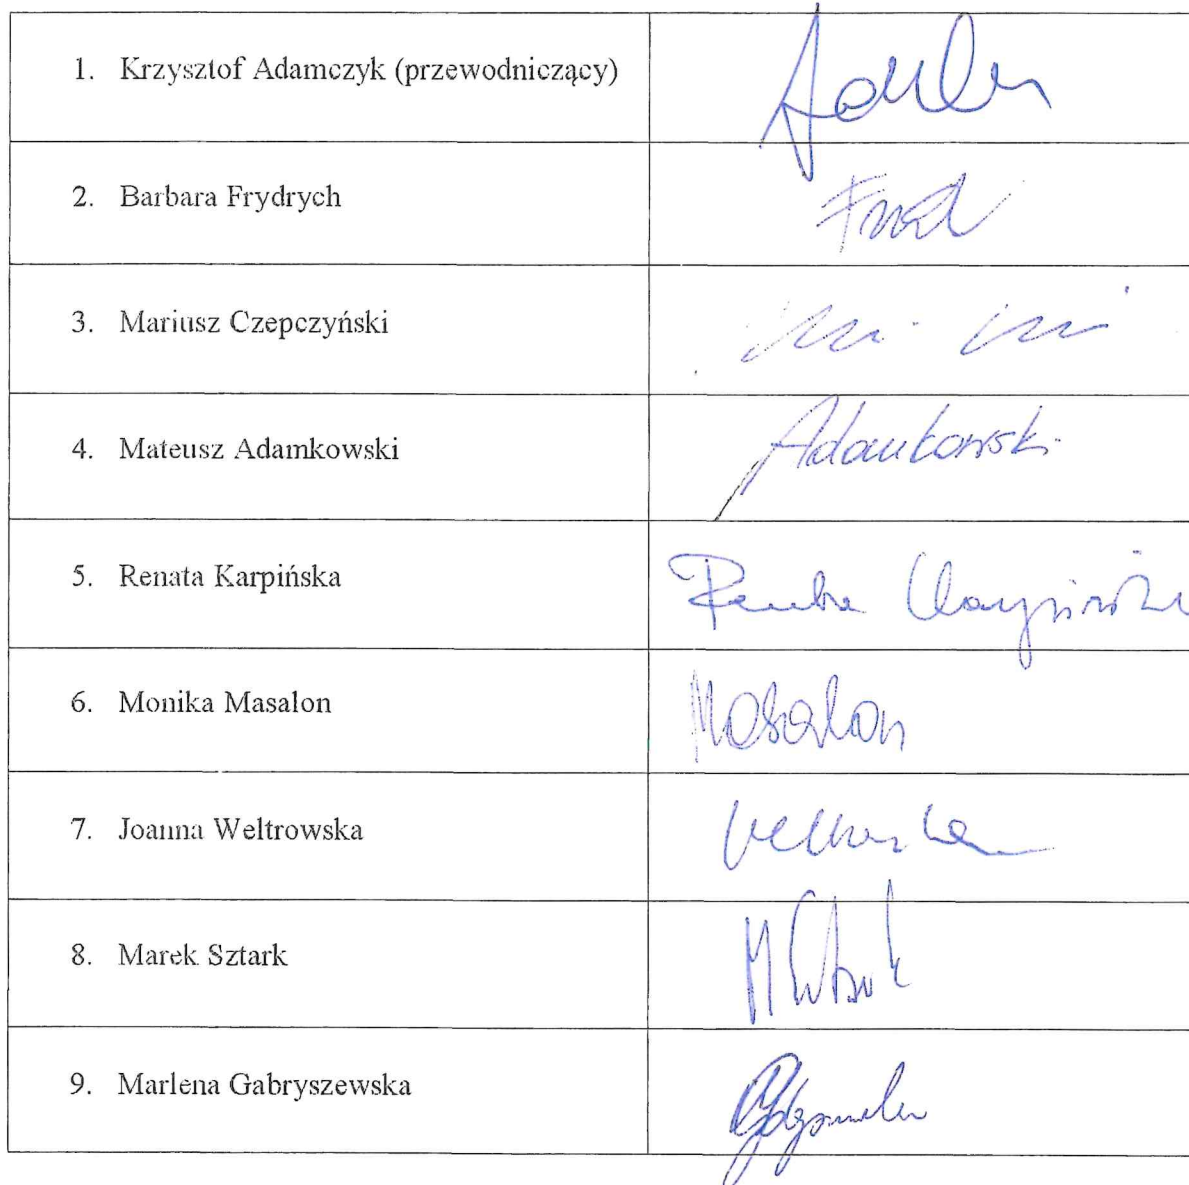 1. Krzysztof Adamczyk (przewodniczący)
2. Barbara Frydrych
3. Mariusz Czepczyński
4. Mateusz Adamkowski Adamkowski
5. Renata Karpińska Renata Karpińska
6. Monika Masalon Masalon
7. Joanna Weltrowska
8. Marek Sztark
9. Marlena Gabryszewska